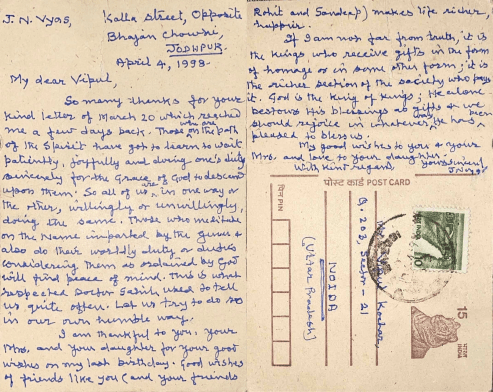 J. N. Vyas,
Kalla Street, Opposite
Bhajan Chowki,
JODHPUR.
April 4, 1998.
My dear Vipul,
So many thanks for your
kind letter of March 20 which reached
me a few days back. Those who are on the path
of the Spirit have got to learn to wait
patiently, joyfully and doing one's duty
sincerely for the Grace of God to descend
upon them. So all of us are, in one way or
the other, willingly or unwillingly,
doing the same. Those who meditate
on the Name imparted by the guru &
also do their worldly duty or duties
considering them as ordained by God
will find peace of mind. This is what
respected Doctor Sahib used to tell
us quite often. Let us try to do so
in our own humble way.
I am thankful to you, your
Mrs. and your daughter for your good
wishes on my last birthday. Good wishes
of friends like you (and your friends
Rohit and Sandeep) makes life richer,
happier.
If I am not far from truth, it is
the kings who receive gifts in the form
of homage or in some other form; it is
the richer section of the society who pays
it. God is the King of kings; He alone
bestows His blessings as gifts & we
should rejoice in whatever He has been
pleased to bless us.
My good wishes to you & your
Mrs. and love to your daughter.
With kind regards,
yours sincerely
J N Vyas
पोस्ट कार्ड POST CARD
पिन PIN
Kochar,
Sector - 21
NOIDA
(Uttar Pradesh)
15